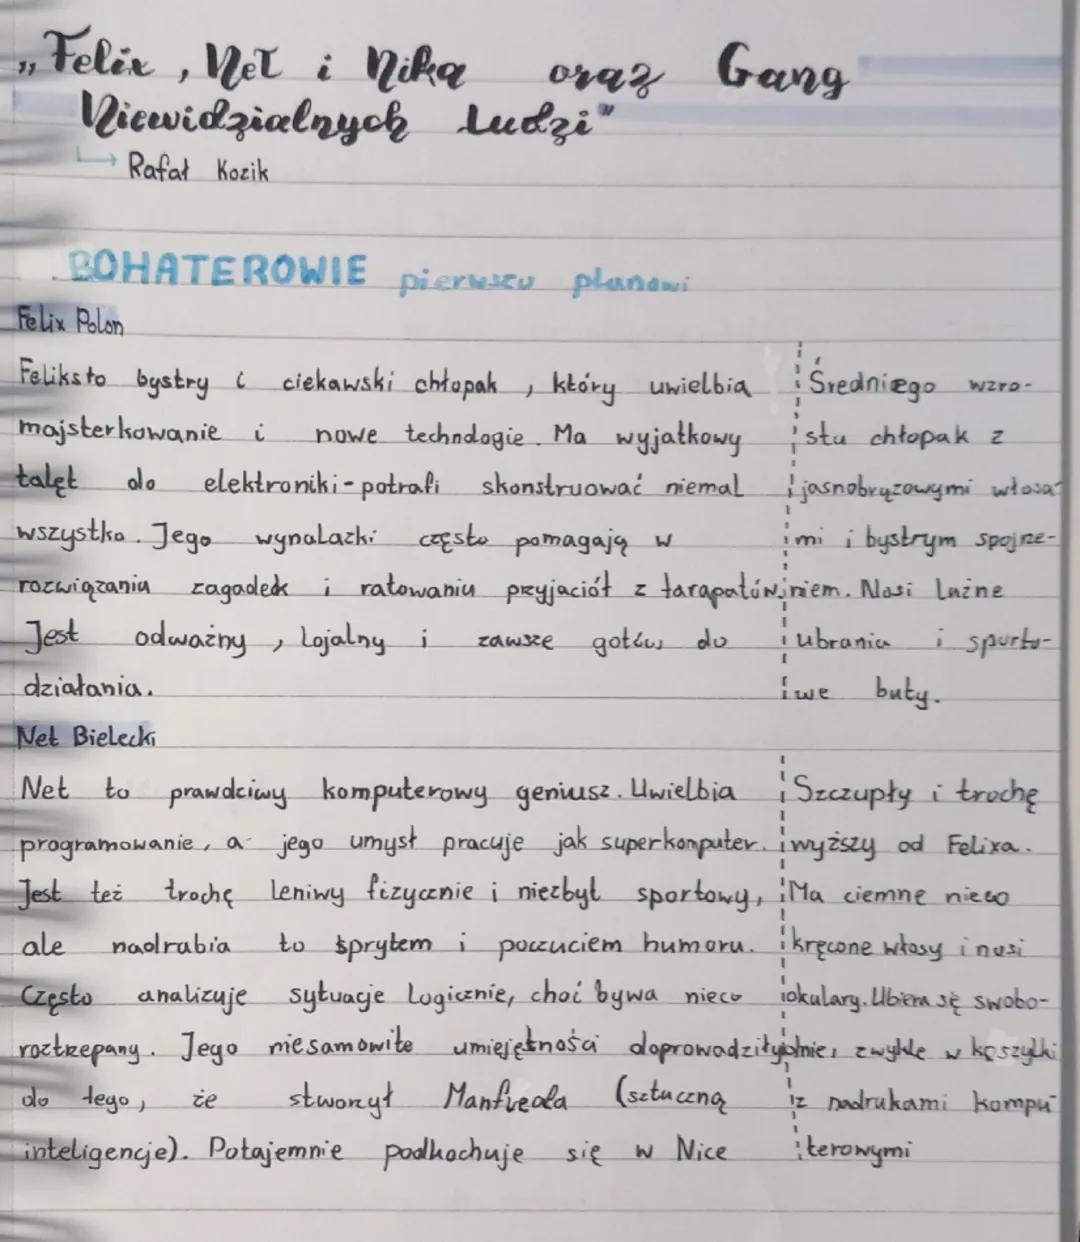 „Felix, Net i Nika oraz Gang
Niewidzialnych Ludzi"
↳ Rafał Kozik
BOHATEROWIE pierwszo planowi
Felix Polon
Feliks to bystry i ciekawski chłopak, który uwielbia
majsterkowanie i nowe technologie. Ma wyjatkowy
talęt do elektroniki - potrafi skonstruować niemal
wszystko. Jego wynalazki często pomagają w
rozwiązaniu zagadek i ratowaniu przyjaciół z tarapatów.
Jest odważny, lojalny i zawsze gotów do
działania.
Średniego wzro-
stu chłopak z
jasnobrązowymi włosa-
mi i bystrym spojrze-
niem. Nosi luźne
ubrania i sporto-
we buty.
Net Bielecki
Net to prawdziwy komputerowy geniusz. Uwielbia
programowanie, a jego umysł pracuje jak superkomputer.
Jest też trochę leniwy fizycznie i niezbyt sportowy,
ale nadrabia to sprytem i poczuciem humoru.
Często analizuje sytuacje logicznie, choć bywa nieco
roztrzepany. Jego niesamowite umiejętności doprowadziły
do tego, że stworzył Manfreda (sztuczną
inteligencje). Potajemnie podkochuje się w Nice
Szczupły i trochę
wyższy od Felixa.
Ma ciemne nieco
kręcone włosy i nosi
okulary. Ubiera się swobo-
dnie, zwykle w koszulki
z nadrukami kompu-
terowymi